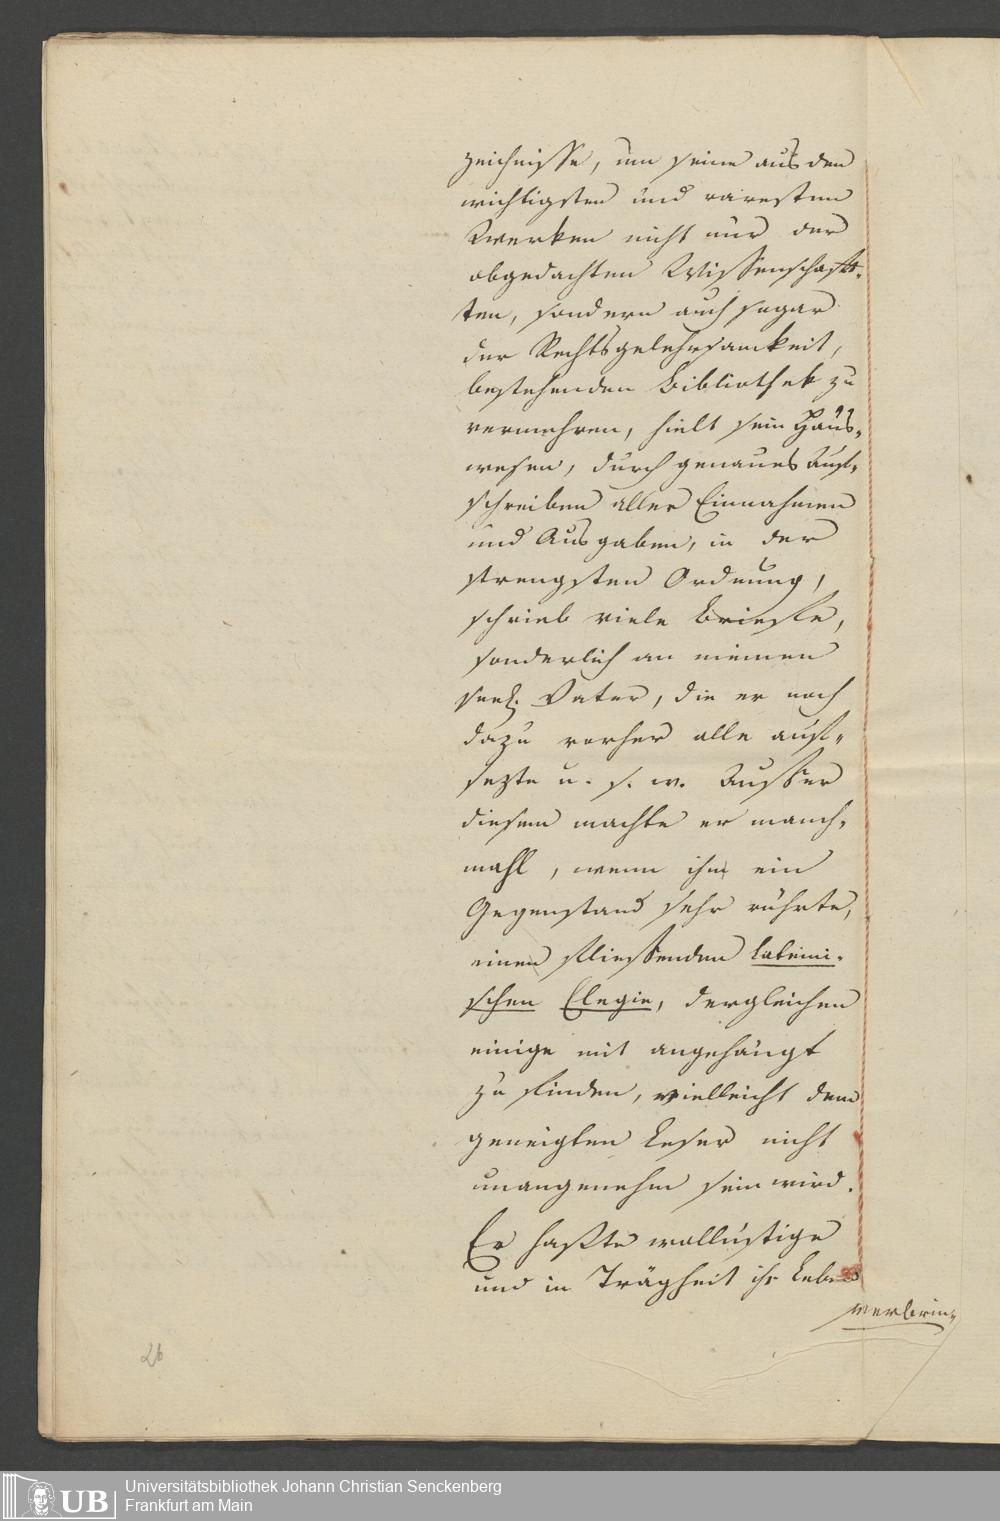 zeichnisse, um seine aus den
wichtigsten und raresten
Werken nicht nur der
obgedachten Wissenschaff-
ten, sondern auch sogar
der Rechtsgelehrsamkeit,
bestehenden Bibliothek zu
vermehren, hielt sein Haus-
wesen, durch genaues Auf-
schreiben aller Einnahmen
und Ausgaben, in der
strengsten Ordnung,
schrieb viele Briefe,
sonderlich an meinen
seel. Vater, die er noch
dazu vorher alle auf-
sezte u. s. w. Ausser
diesem machte er manch-
mahl, wenn ihn ein
Gegenstand sehr rührte,
einen fliessenden lateini-
schen Elegie, dergleichen
einige mit angehängt
zu finden, vielleicht dem
geneigten Leser nicht
unangenehm sein wird.
Er haßte wollüstige
und in Trägheit ihr Leben
verbrin-
26
UB
Universitätsbibliothek Johann Christian Senckenberg
Frankfurt am Main